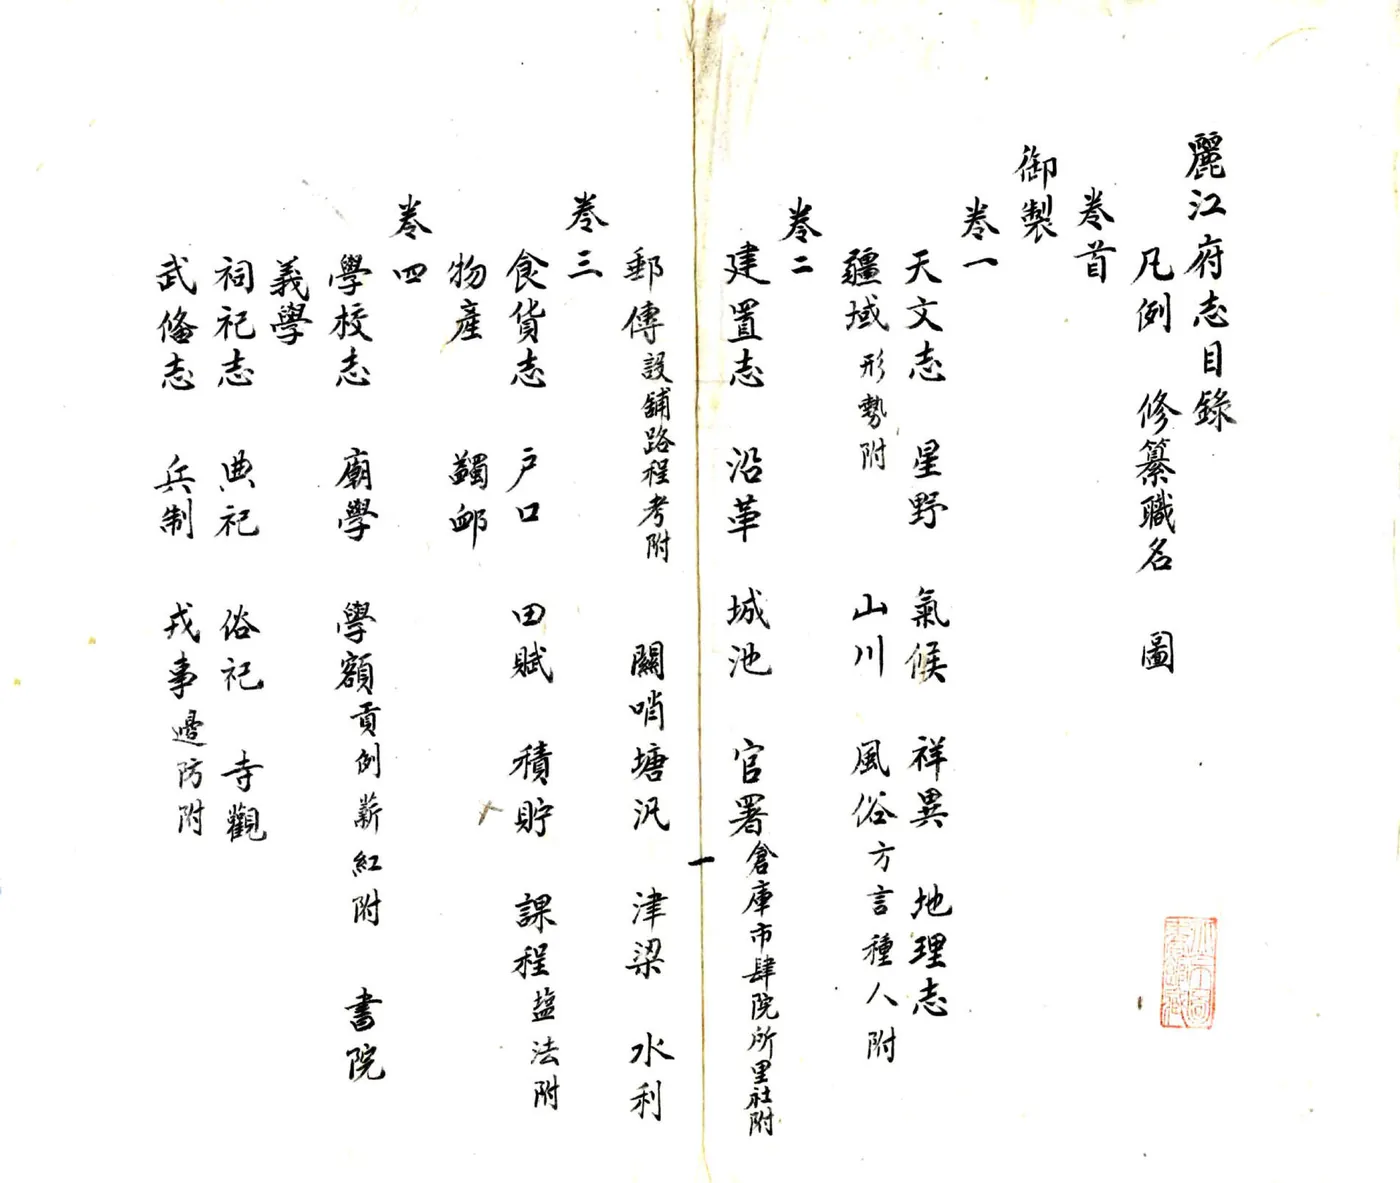 麗江府志目錄
凡例　修纂職名　圖
卷首
御製
卷一
天文志　星野　氣候　祥異　地理志
疆域形勢附　山川　風俗方言種人附
卷二
建置志　沿革　城池　官署倉庫市肆院所里社附
一
郵傳設舖路程考附　關哨塘汛　津梁　水利
卷三
食貨志　戶口　田賦　積貯　課程塩法附
物產　蠲卹
卷四
學校志　廟學　學額貢例薪紅附　書院
義學
祠祀志　典祀　俗祀　寺觀
武俻志　兵制　戎事邊防附